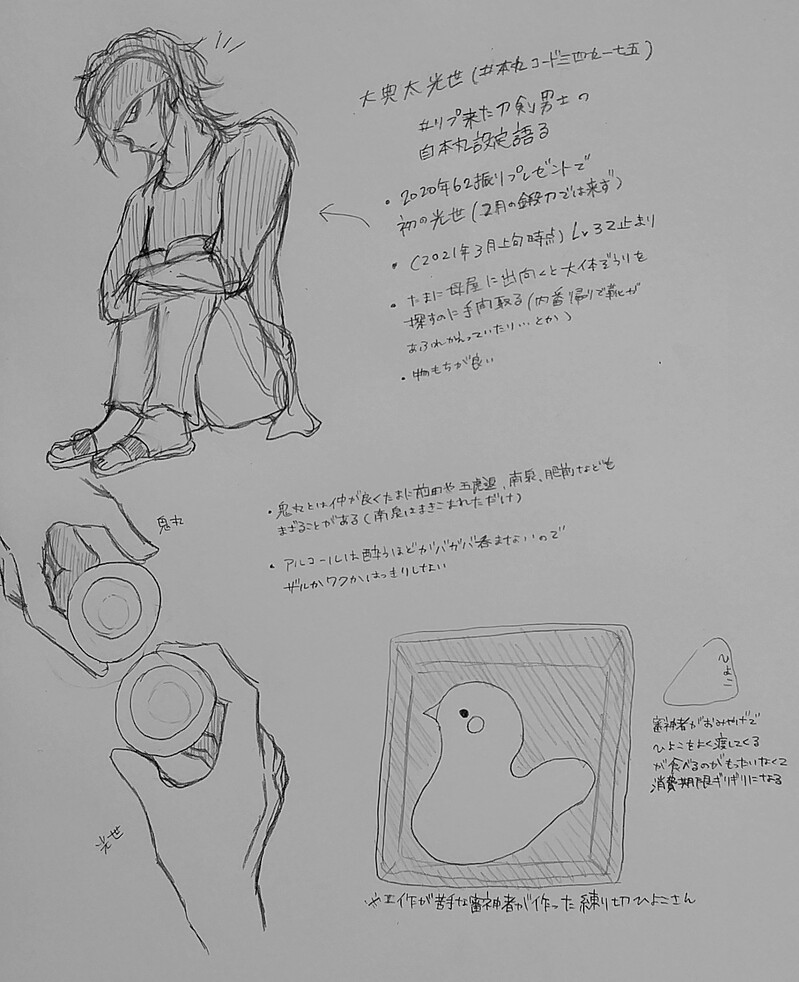 大典太光世(#本丸コード三四九一七五)
#リプ来た刀剣男士の
自本丸設定語る
・2020年62振りプレゼントで
初の光世(2月の鍛刀では来ず)
・(2021年3月上旬時点)Lv32止まり
・たまに母屋に出向くと大体ぞうりを
探すのに手間取る(内番帰りで靴が
あふれかえっていたり…とか)
・物もちが良い
・鬼丸とは仲が良くたまに前田や五虎退、南泉、肥前なども
まざることがある(南泉はまきこまれただけ)
・アルコールは酔うほどガバガバ呑ませないので
ザルかワクかはっきりしない
鬼丸
光世
ひよこ
審神者がおみやげで
ひよこをよく渡してくる
が食べるのがもったいなくて
消費期限ギリギリになる
※工作が苦手な審神者が作った練り切りひよこさん